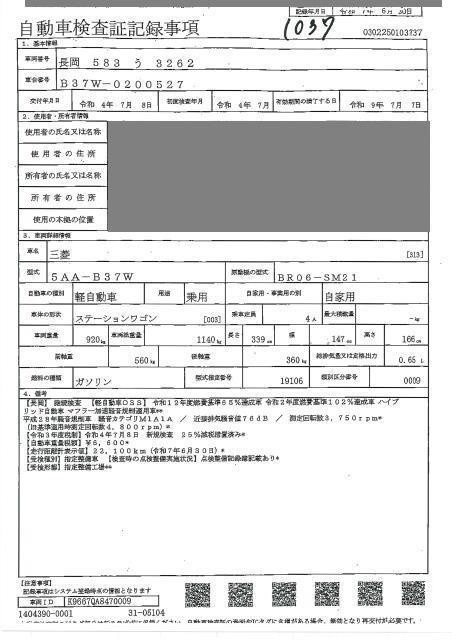 記録年月日 令和 7年 6月30日
自動車検査証記録事項
1037
0302250103737
1. 基本情報
車両番号 長岡 583 う 3262
車台番号 B37W-0200527
交付年月日 令和 4年 7月 8日 初度検査年月 令和 4年 7月 有効期間の満了する日 令和 9年 7月 7日
2. 使用者・所有者情報
使用者の氏名又は名称
使用者の住所
所有者の氏名又は名称
所有者の住所
使用の本拠の位置
3. 車両詳細情報
車名 三菱 [313]
型式 5AA-B37W 原動機の型式 BR06-SM21
自動車の種別 軽自動車 用途 乗用 自家用・事業用の別 自家用
車体の形状 ステーションワゴン [003] 乗車定員 4人 最大積載量 -kg
車両重量 920kg 車両総重量 1140kg 長さ 339cm 幅 147cm 高さ 166cm
前軸重 560kg 後軸重 360kg 総排気量又は定格出力 0.65 L
燃料の種類 ガソリン 型式指定番号 19106 類別区分番号 0009
4. 備考
【長岡】 継続検査 【軽自動車OSS】 令和12年度燃費基準65%達成車 令和2年度燃費基準102%達成車 ハイブ
リッド自動車 マフラー加速騒音規制適用車**
平成28年騒音規制車 騒音カテゴリM1A1A / 近接排気騒音値76dB / 測定回転数3,750rpm*
(旧基準適用時測定回転数4,800rpm)*
【令和3年度税制】令和4年7月8日 新規検査 25%減税措置済み*
【自動車重量税額】¥6,600*
【走行距離計表示値】22,100km (令和7年6月30日)*
【受検種別】指定整備車 【検査時の点検整備実施状況】点検整備記録簿記載あり*
【受検形態】指定整備工場**
【注意事項】
記載事項はシステム登録時点の情報となります
車両ID K9667QA8470009
1404390-0001 31-05104